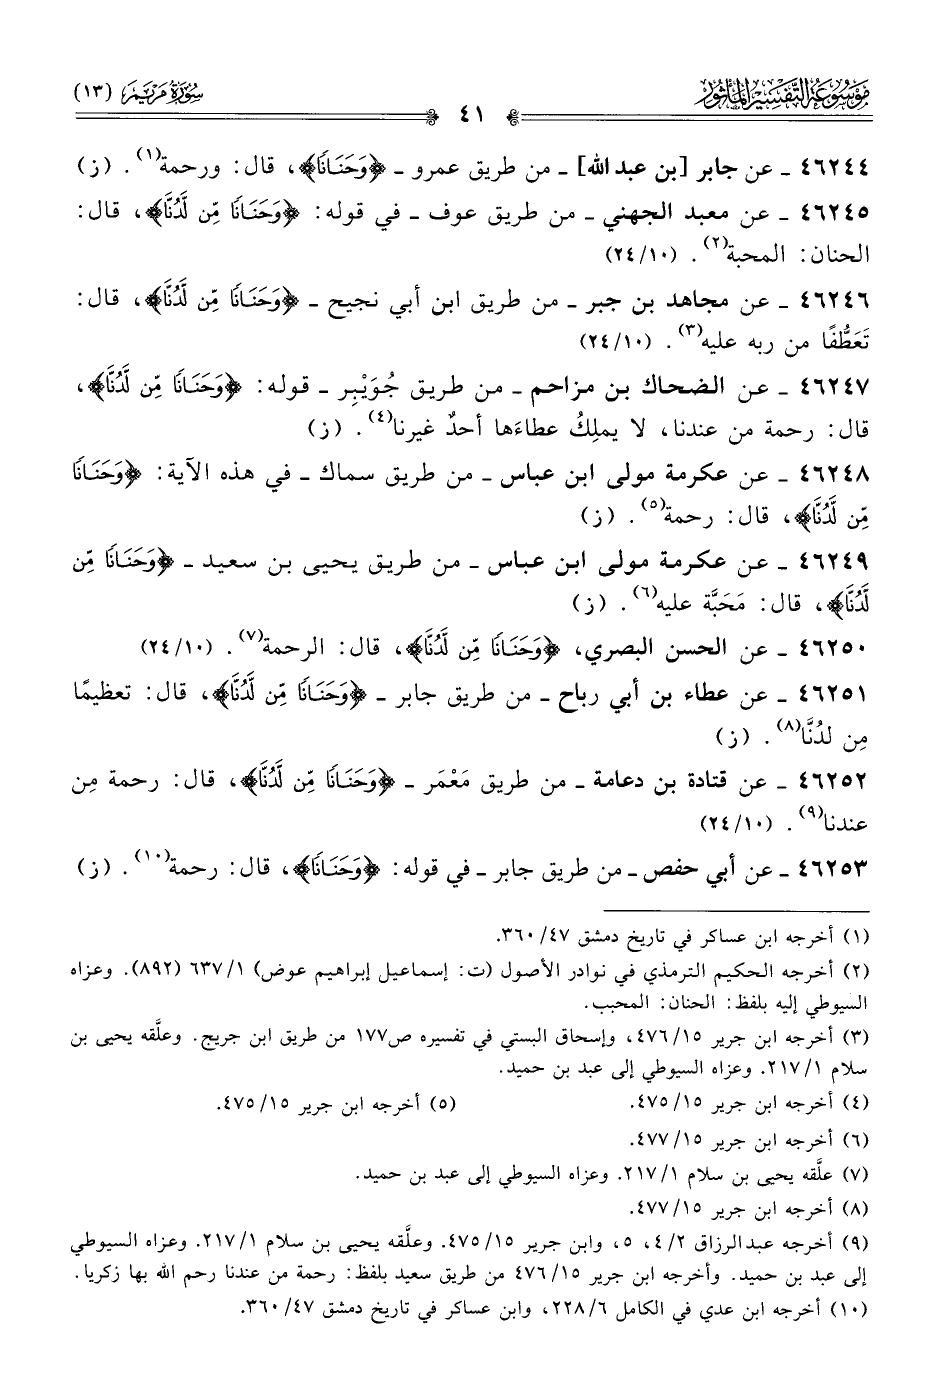 مَوْسُوعَةُ التَّفْسِيرِ المَأْثُورِ
٤١
سُورَةُ مَرْيَمَ (١٣)
٤٦٢٤٤ ـ عن جابر [بن عبد الله] ـ من طريق عمرو ـ ﴿وَحَنَانًا﴾، قال: ورحمة(١). (ز)
٤٦٢٤٥ ـ عن معبد الجهني ـ من طريق عوف ـ في قوله: ﴿وَحَنَانًا مِّن لَّدُنَّا﴾، قال:
الحنان: المحبة(٢). (٢٤/١٠)
٤٦٢٤٦ ـ عن مجاهد بن جبر ـ من طريق ابن أبي نجيح ـ ﴿وَحَنَانًا مِّن لَّدُنَّا﴾، قال:
تَعَطُّفًا من ربه عليه(٣). (٢٤/١٠)
٤٦٢٤٧ ـ عن الضحاك بن مزاحم ـ من طريق جُوَيْبِر ـ قوله: ﴿وَحَنَانًا مِّن لَّدُنَّا﴾،
قال: رحمة من عندنا، لا يملِكُ عطاءَها أحدٌ غيرنا(٤). (ز)
٤٦٢٤٨ ـ عن عكرمة مولى ابن عباس ـ من طريق سماك ـ في هذه الآية: ﴿وَحَنَانًا
مِّن لَّدُنَّا﴾، قال: رحمة(٥). (ز)
٤٦٢٤٩ ـ عن عكرمة مولى ابن عباس ـ من طريق يحيى بن سعيد ـ ﴿وَحَنَانًا مِّن
لَّدُنَّا﴾، قال: مَحَبَّة عليه(٦). (ز)
٤٦٢٥٠ ـ عن الحسن البصري، ﴿وَحَنَانًا مِّن لَّدُنَّا﴾، قال: الرحمة(٧). (٢٤/١٠)
٤٦٢٥١ ـ عن عطاء بن أبي رباح ـ من طريق جابر ـ ﴿وَحَنَانًا مِّن لَّدُنَّا﴾، قال: تعظيمًا
مِن لدُنَّا(٨). (ز)
٤٦٢٥٢ ـ عن قتادة بن دعامة ـ من طريق مَعْمَر ـ ﴿وَحَنَانًا مِّن لَّدُنَّا﴾، قال: رحمة مِن
عندنا(٩). (٢٤/١٠)
٤٦٢٥٣ ـ عن أبي حفص ـ من طريق جابر ـ في قوله: ﴿وَحَنَانًا﴾، قال: رحمة(١٠). (ز)
(١) أخرجه ابن عساكر في تاريخ دمشق ٣٦٠/٤٧.
(٢) أخرجه الحكيم الترمذي في نوادر الأصول (ت: إسماعيل إبراهيم عوض) ٦٣٧/١ (٨٩٢). وعزاه
السيوطي إليه بلفظ: الحنان: المحبب.
(٣) أخرجه ابن جرير ٤٧٦/١٥، وإسحاق البستي في تفسيره ص١٧٧ من طريق ابن جريج. وعلَّقه يحيى بن
سلام ٢١٧/١. وعزاه السيوطي إلى عبد بن حميد.
(٤) أخرجه ابن جرير ٤٧٥/١٥. (٥) أخرجه ابن جرير ٤٧٥/١٥.
(٦) أخرجه ابن جرير ٤٧٧/١٥.
(٧) علَّقه يحيى بن سلام ٢١٧/١. وعزاه السيوطي إلى عبد بن حميد.
(٨) أخرجه ابن جرير ٤٧٧/١٥.
(٩) أخرجه عبدالرزاق ٤/٢، ٥، وابن جرير ٤٧٥/١٥. وعلَّقه يحيى بن سلام ٢١٧/١. وعزاه السيوطي
إلى عبد بن حميد. وأخرجه ابن جرير ٤٧٦/١٥ من طريق سعيد بلفظ: رحمة من عندنا رحم الله بها زكريا.
(١٠) أخرجه ابن عدي في الكامل ٢٢٨/٦، وابن عساكر في تاريخ دمشق ٣٦٠/٤٧.